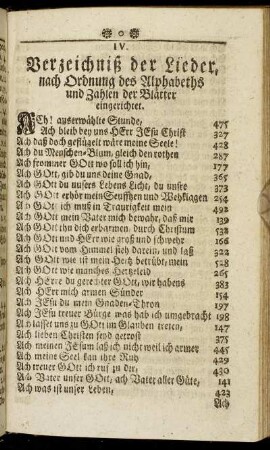 o
IV.
Verzeichniß der Lieder,
nach Ordnung des Alphabeths
und Zahlen der Blätter
eingerichtet.
ACh! auserwählte Stunde, 475
Ach bleib bey uns HErr JEsu Christ 327
Ach daß doch geflügelt wäre meine Seele! 428
Ach du Menschen-Blum, gleich den rothen 287
Ach frommer GOtt wo soll ich hin, 177
Ach GOtt, gib du uns deine Gnad, 365
Ach GOtt du unsers Lebens Licht, du unser 373
Ach GOtt erhör mein Seuffzen und Wehklagen 254
Ach GOtt ich muß in Traurigkeit mein 492
Ach GOtt mein Vater mich bewahr, daß mir 139
Ach GOtt thu dich erbarmen, durch Christum 53
Ach GOtt und HErr wie groß und schwehr 166
Ach GOtt vom Himmel sieh darein, und laß 322
Ach GOtt wie ist mein Hertz betrübt, mein 528
Ach GOtt wie manches Hertzeleid 265
Ach HErre du gerechter GOtt, wir habens 383
Ach HErr mich armen Sünder 154
Ach JEsu du mein Gnaden-Thron 197
Ach JEsu treuer Bürge was hab ich umgebracht 198
Ach lasset uns zu GOtt im Glauben treten, 147
Ach lieben Christen seyd getrost 385
Ach meinen JEsum laß ich nicht weil ich armer 445
Ach meine Seel kan ihre Ruh 429
Ach treuer GOtt ich ruf zu dir, 430
Ach Vater unser GOtt, ach Vater aller Güte, 141
Ach was ist unser Leben, 423
Ach